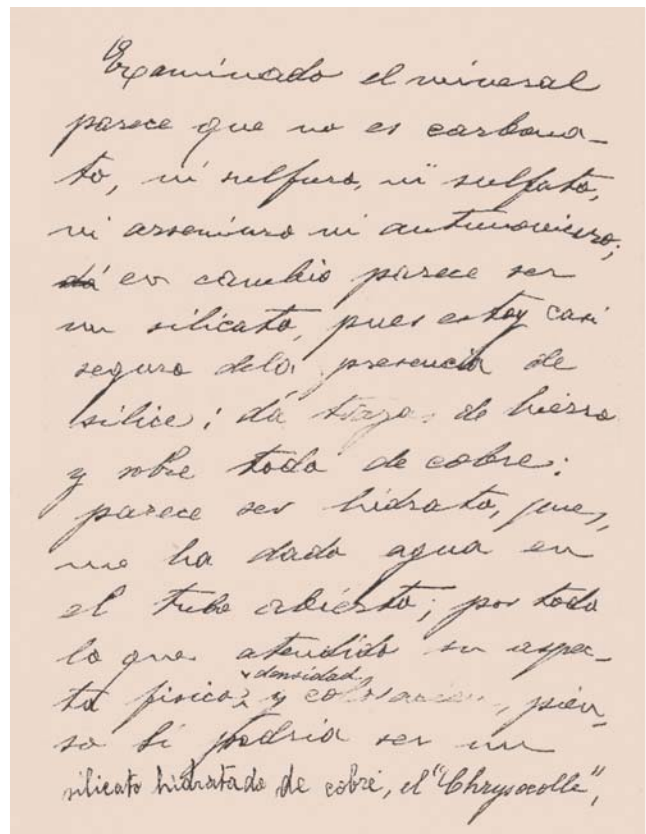 Examinado el mineral
parece que no es carbona-
to, ni sulfuro, ni sulfato,
ni arseniuro ni antimoniuro;
dá en cambio parece ser
un silicato, pues estoy casi
seguro dela presencia de
silice; dá de hierro
y sobre todo de cobre;
parece ser hidrato, pues,
me ha dado agua en
el tubo abierto; por todo
lo que atendido su aspec-
to fisico, y densidad y coloracion, pien-
so si podria ser un
silicato hidratado de cobre, el "Chrysocolle",